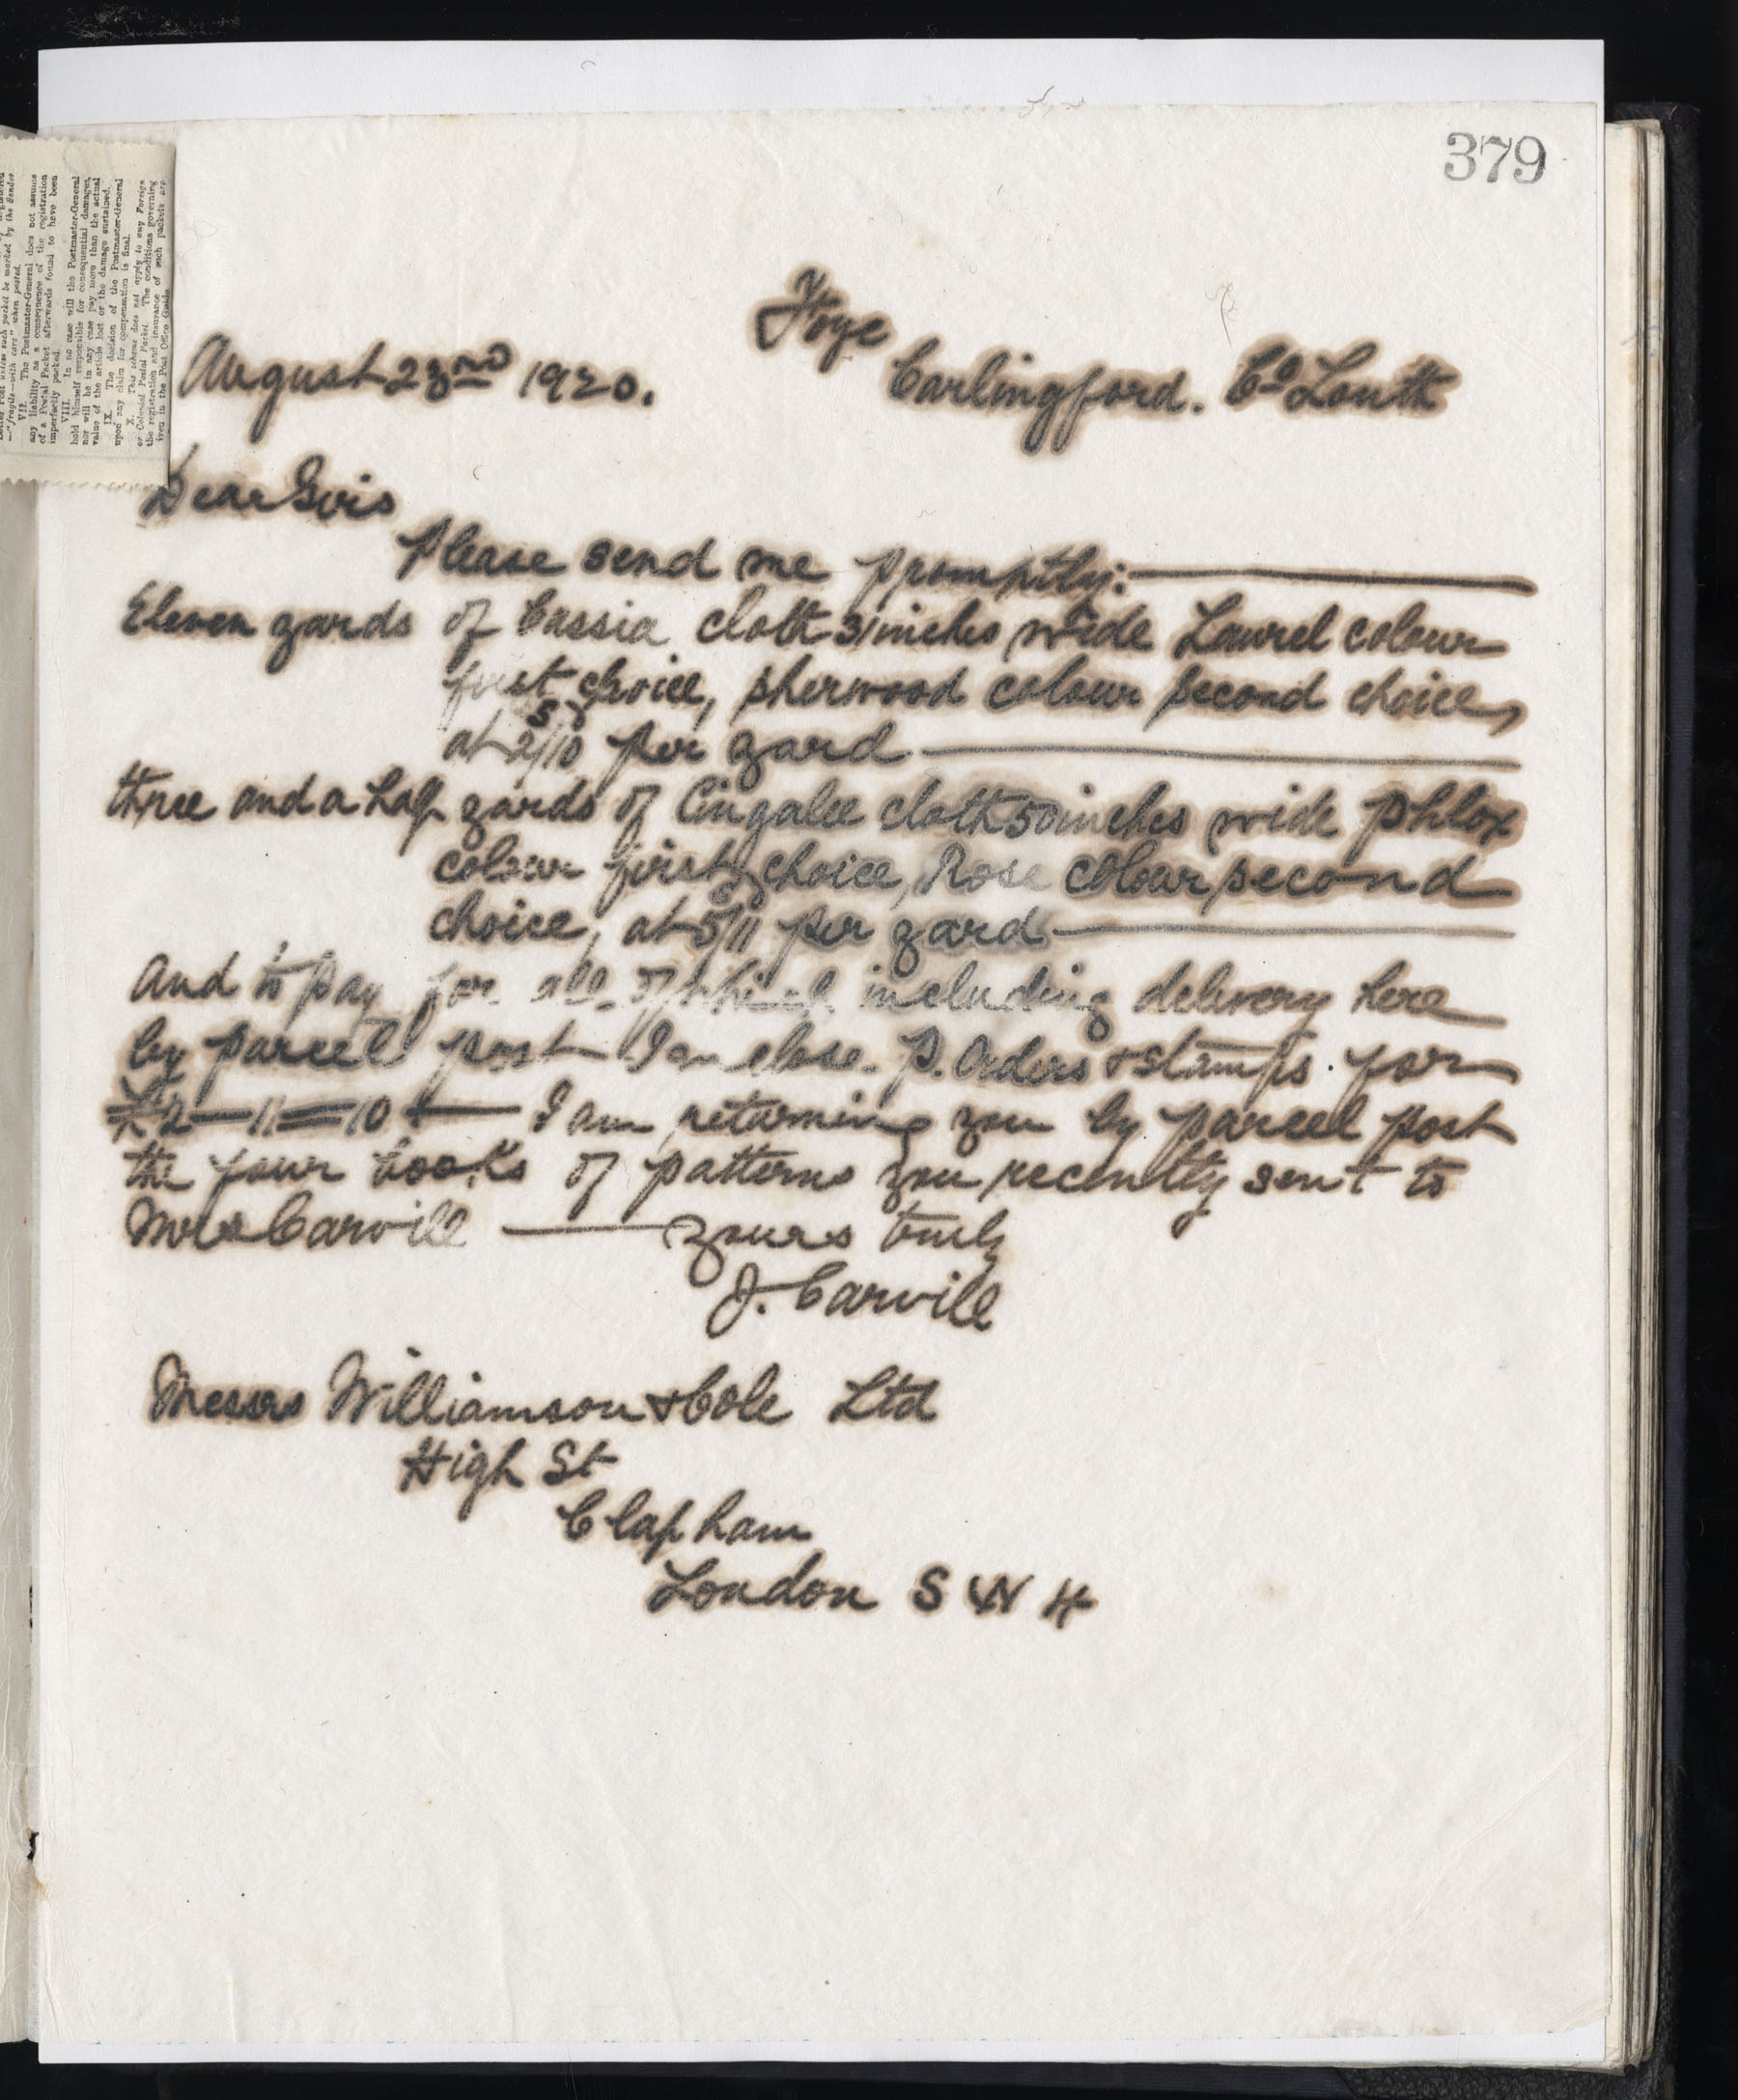 379
Foye
August 23rd 1920. Carlingford. Co Louth
Dear Sirs
Please send me promptly:
Eleven yards of Cassia cloth 31 inches wide Laurel colour
first choice, sherwood colour second choice,
at 2/10 per yard
three and a half yards of Cingalee cloth 50 inches wide Phlox
colour first choice, Rose colour second
choice, at 5/11 per yard
And to pay for all of which including delivery here
by parcel post I enclose P. Orders & stamps for
£2—11=10 I am returning you by parcel post
the four books of patterns you recently sent to
Mrs Carvill yours truly
J. Carvill
Messrs Williamson & Cole Ltd
High St
Clapham
London S W 4
—"fragile—with care" when posted.
VII. The Postmaster-General does not assume
any liability as a consequence of the registration
of a Postal Packet afterwards found to have been
imperfectly packed.
VIII. In no case will the Postmaster-General
hold himself responsible for consequential damages,
nor will he in any case pay more than the actual
value of the article lost or the damage sustained.
IX. The decision of the Postmaster-General
upon any claim for compensation is final.
X. This scheme does not apply to any Foreign
or Colonial Postal Packet. The conditions governing
the registration and insurance of such packets are
given in the Post Office Guide